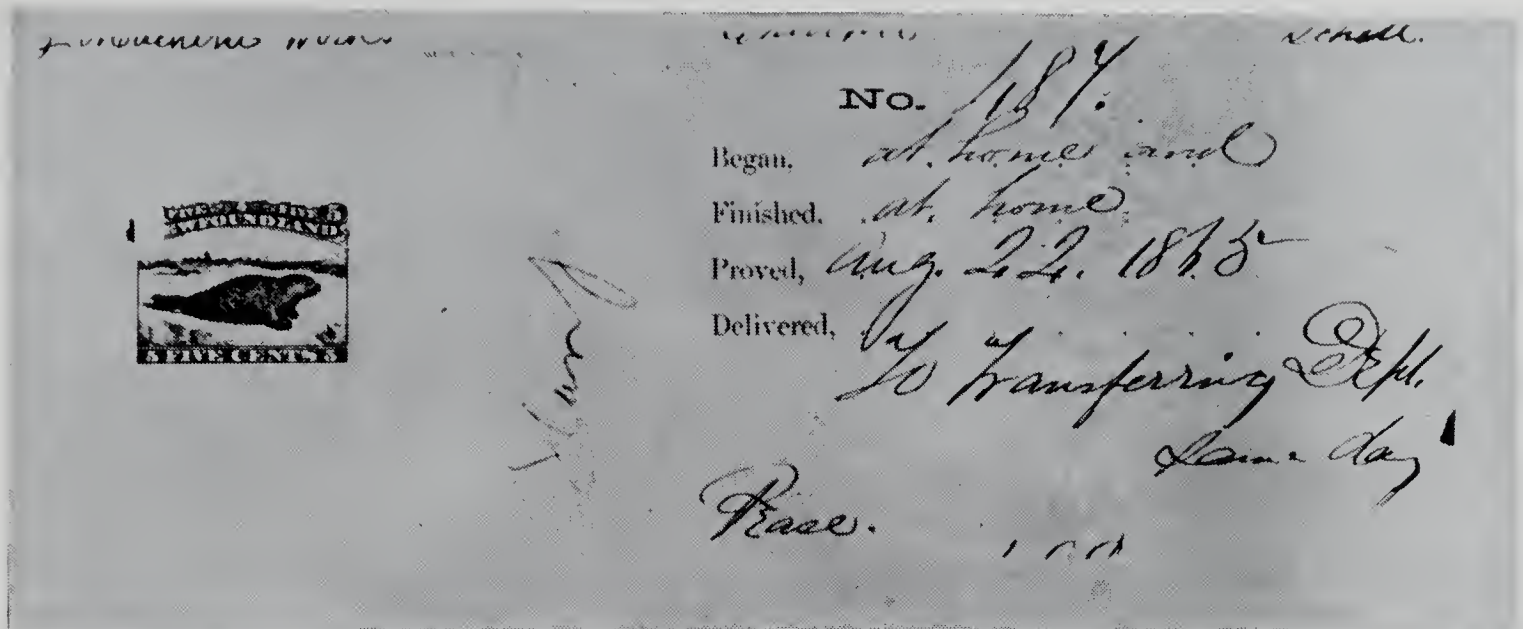 Schell.
No. 187.
Began, at home and
Finished, at home.
Proved, Aug. 22. 1865
Delivered, To Transferring Dept.
same day
NEWFOUNDLAND.
5 FIVE CENTS 5
Pease.